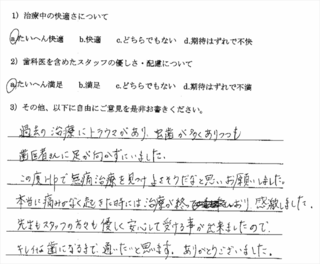 1) 治療中の快適さについて
a.たいへん快適 b.快適 c.どちらでもない d.期待はずれで不快
2) 歯科医を含めたスタッフの優しさ・配慮について
a.たいへん満足 b.満足 c.どちらでもない d.期待はずれで不満
3) その他、以下に自由にご意見を是非お書きください。
過去の治療にトラウマがあり、虫歯が多くありつつも
歯医者さんに足が向かずにいました。
この度HPで無痛治療を見つけ よさそうだなと思いお願いしました。
本当に痛みがなく起きた時には治療が終 おり 感激しました。
先生もスタッフの方々も優しく安心して受ける事が出来ましたので
キレイな歯になるまで通いたいと思います。ありがとうございました。